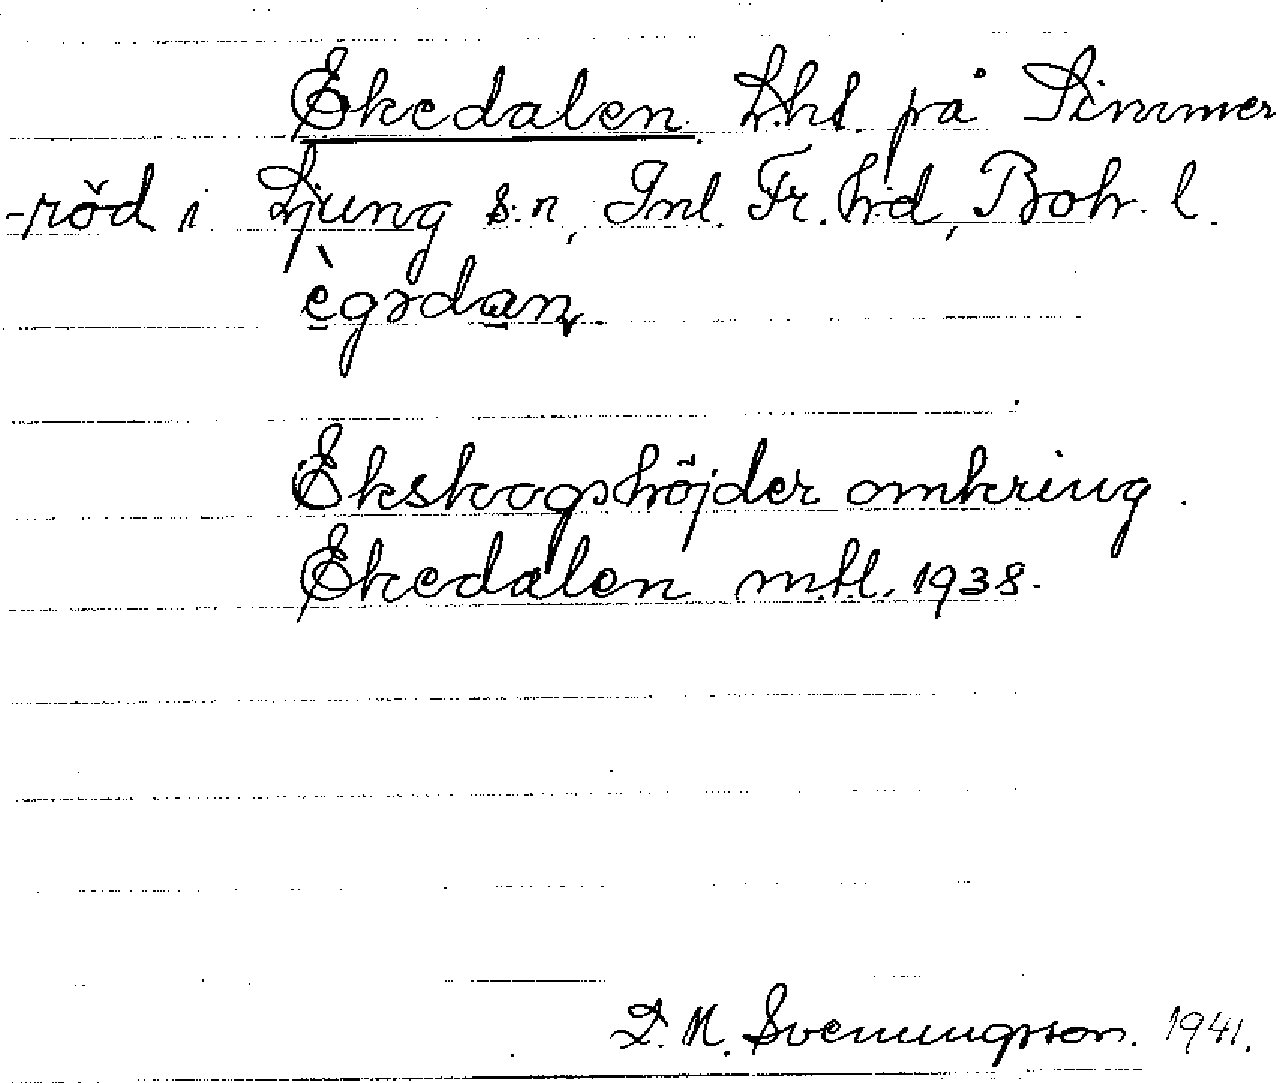 Ekedalen. Lht. på Simmer
-röd i Ljung s:n, Inl. Fr. hd, Boh. l.
è̱gəda̱n
Ekskogshöjder omkring.
Ekedalen m.fl. 1938.
D. M. Svenungsson. 1941.